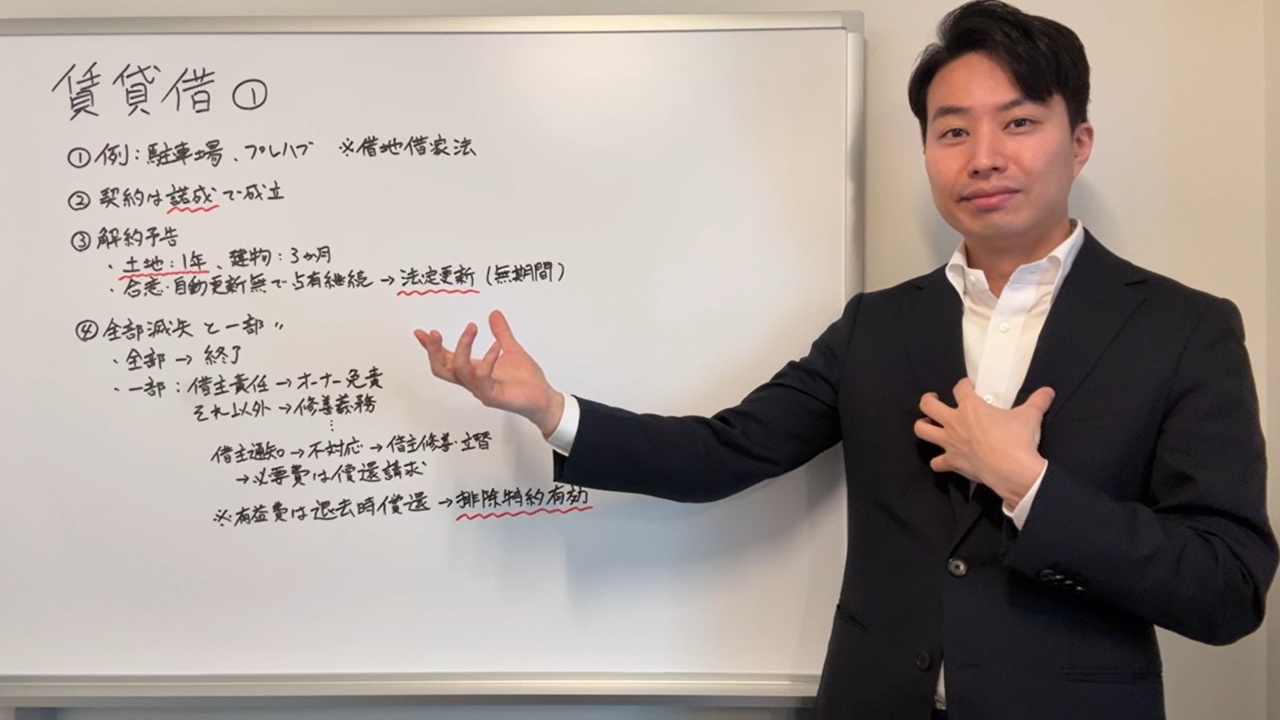 賃貸借①
①例：駐車場、プレハブ ※借地借家法
②契約は諾成で成立
③解約予告
・土地：1年、建物：3か月
・合意・自動更新無で占有継続→法定更新（無期間）
④全部滅失と一部〃
・全部→終了
・一部：借主責任→オーナー免責
それ以外→修善義務
⋮
借主通知→不対応→借主修善・立替
→必要費は償還請求
※有益費は退去時償還→排除特約有効